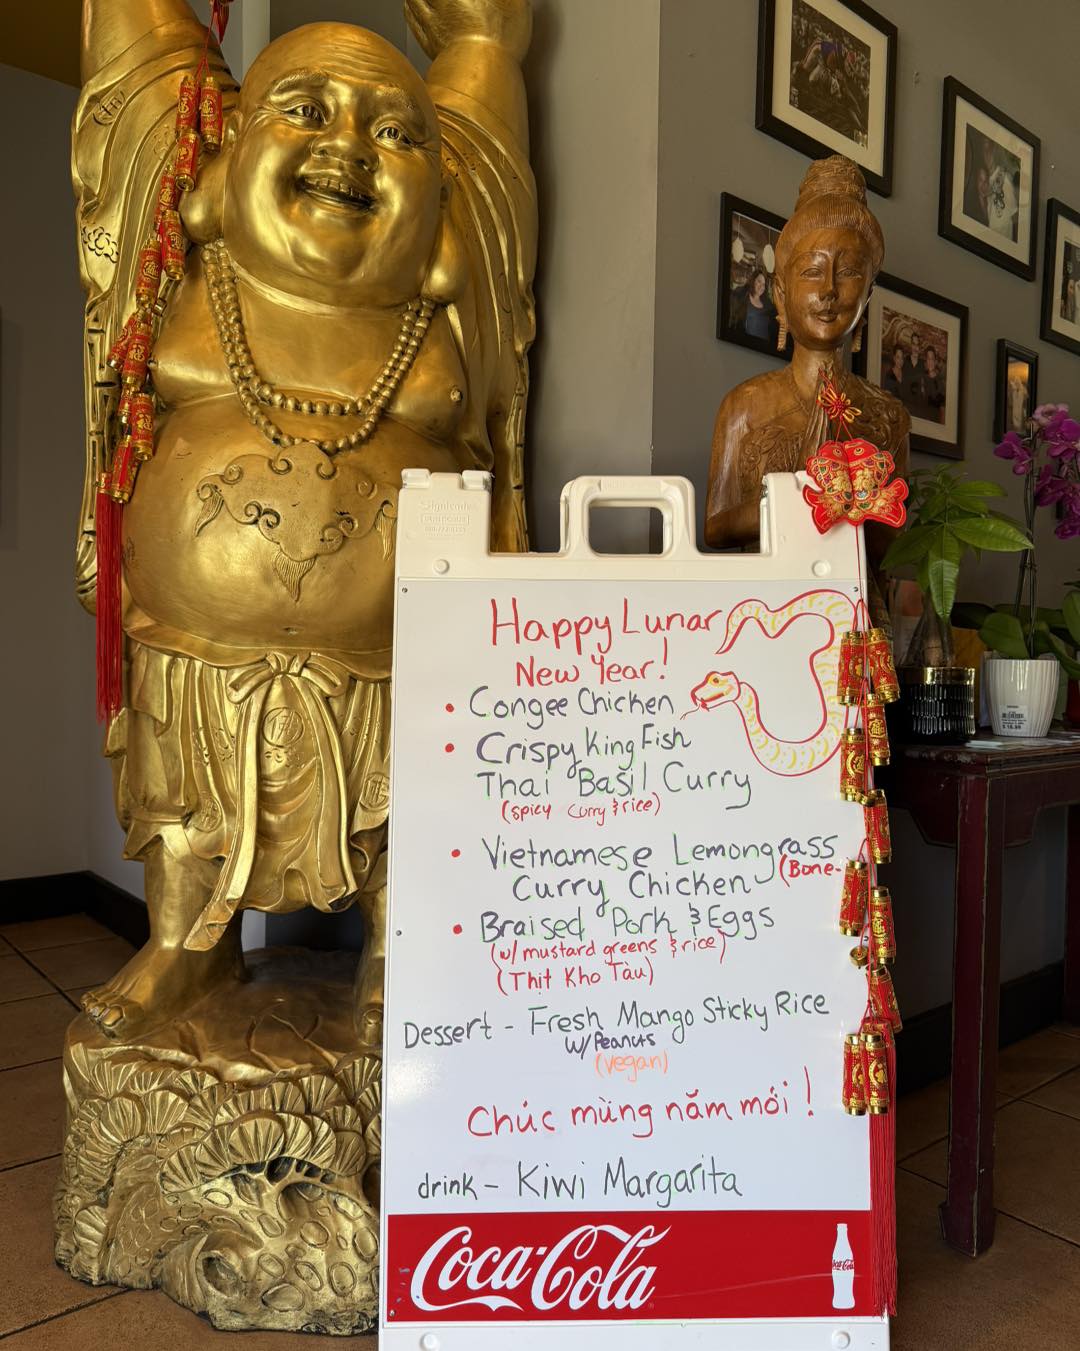 Happy Lunar
New Year!
• Congee Chicken
• Crispy King Fish
Thai Basil Curry
(spicy curry & rice)
• Vietnamese Lemongrass
Curry Chicken (Bone-
• Braised Pork & Eggs
(w/ mustard greens & rice)
(Thịt Kho Tàu)
Dessert - Fresh Mango Sticky Rice
w/ Peanuts
(vegan)
Chúc mừng năm mới!
drink - Kiwi Margarita
Coca-Cola
Coca-Cola